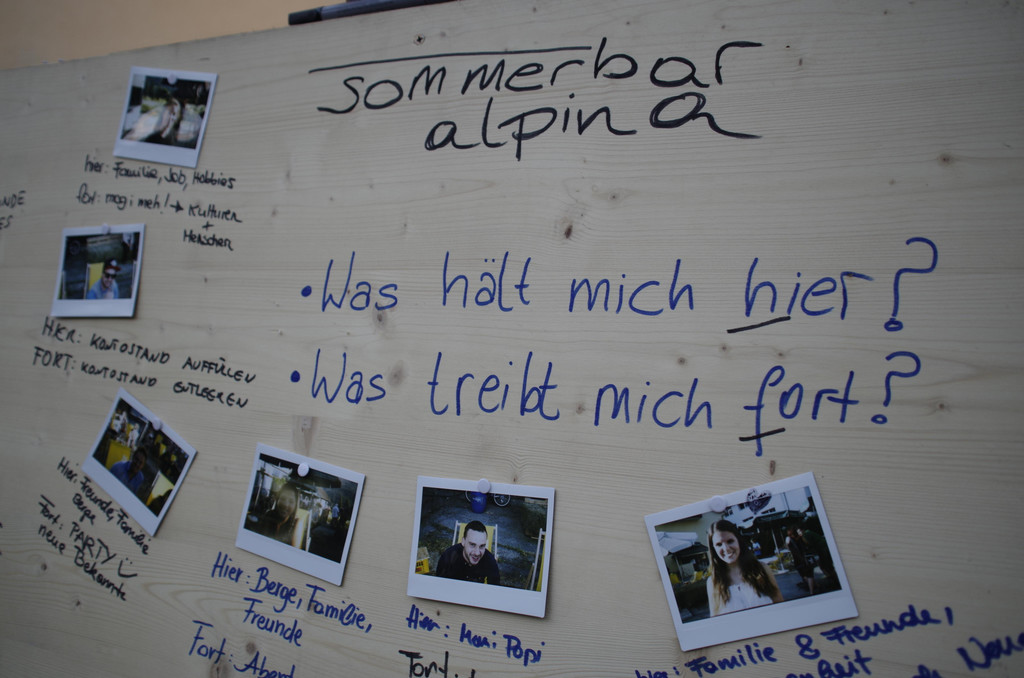 sommerbar
alpina
• Was hält mich hier?
• Was treibt mich fort?
hier: Familie, Job, Hobbies
fort: mog i meh! → Kulturen
+
Menschen
HIER: KONTOSTAND AUFFÜLLEN
FORT: KONTOSTAND ENTLEEREN
Hier: Freunde, Familie
Berge
Fort: PARTY
neue Bekannte
Hier: Berge, Familie,
Freunde
Fort:
Hier: Papi
Fort:
Hier: Familie & Freunde,